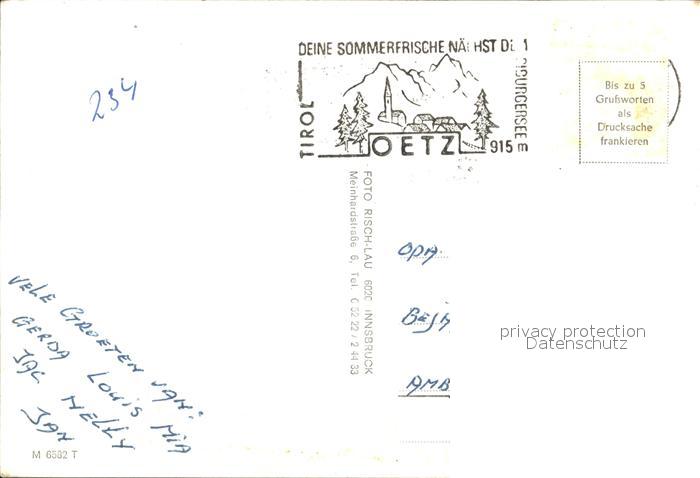 234
DEINE SOMMERFRISCHE NÄCHST DEM
BURGERSEE
TIROL
OETZ
915 m
Bis zu 5
Grußworten
als
Drucksache
frankieren
FOTO RISCH-LAU 6020 INNSBRUCK
Meinhardstraße 6, Tel. 0 52 22 / 2 44 33
OPA.
AMB
privacy protection
Datenschutz
VELE GROETEN VAN:
GERDA LOUIS MIA
JAC NELLY
JAN
M 6582 T